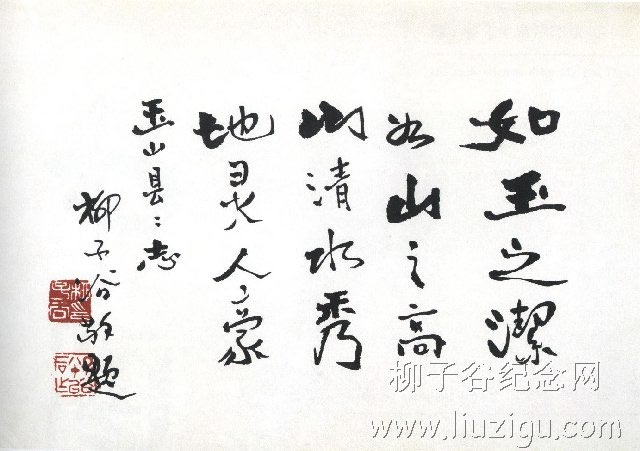 如玉之潔
如山之高
山清水秀
地灵人豪
玉山县〻志
柳子谷敬题
柳子谷纪念网
www.liuzigu.com